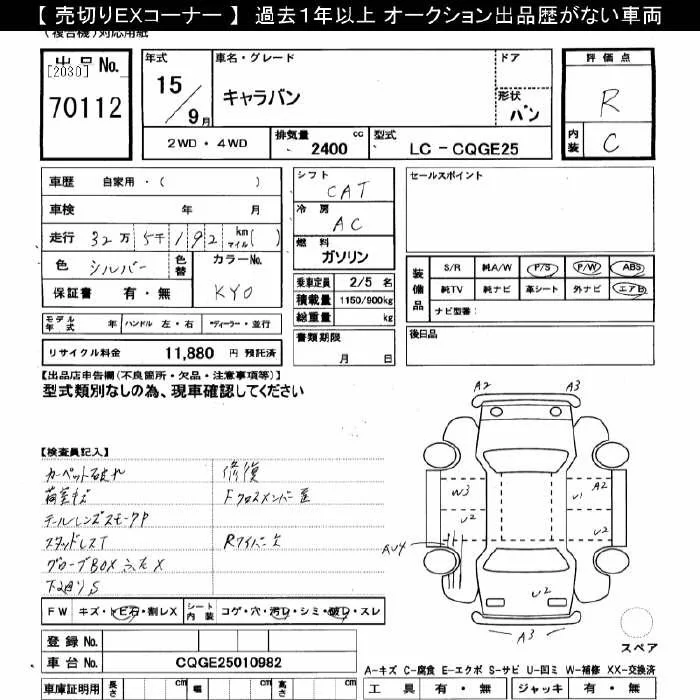 【 売切りEXコーナー 】 過去１年以上 オークション出品歴がない車両
(複合機)対応用紙
出品 No.
[2030]
70112
年式
15 / 9月
車名・グレード
キャラバン
ドア
形状
バン
評価点
R
内装 C
2WD ・ 4WD
排気量 cc
2400
型式
LC － CQGE25
車歴 自家用 ・ ( )
車検 年 月
走行 32万 5千 1 9 2 km マイル ( )
色 シルバー
色替
カラーNo.
KY0
保証書 有 ・ 無
シフト
CAT
冷房
AC
燃料
ガソリン
乗車定員 2/5 名
積載量 1150/900kg
総重量 kg
セールスポイント
装備品
S/R 純A/W P/S P/W ABS
純TV 純ナビ 革シート 外ナビ エアB
ナビ型番：
モデル年式 年 ハンドル 左 ・ 右 ディーラー ・ 並行
リサイクル料金 11,880 円 預託済
書類期限
月 日
後日品
【出品店申告欄(不良箇所・欠品・注意事項等)】
型式類別なしの為、現車確認してください
【検査員記入】
カーペット破れ 修復
荷室キズ Fクロスメンバー歪
テールレンズスモークP
スタッドレスT Rワイパー欠
グローブBOXふたX
下廻りS
A2 A3
W3 U1 A2
U2 U2
AU4
U2
A3
スペア
FW キズ・トビ石・割レX シート内装 コゲ・穴・汚レ・シミ・破レ・スレ
登録 No.
車台 No. CQGE25010982
車庫証明用 長さ cm 幅 cm 高さ cm
A-キズ C-腐食 E-エクボ S-サビ U-凹ミ W-補修 XX-交換済
工具 有 ・ 無 ジャッキ 有 ・ 無